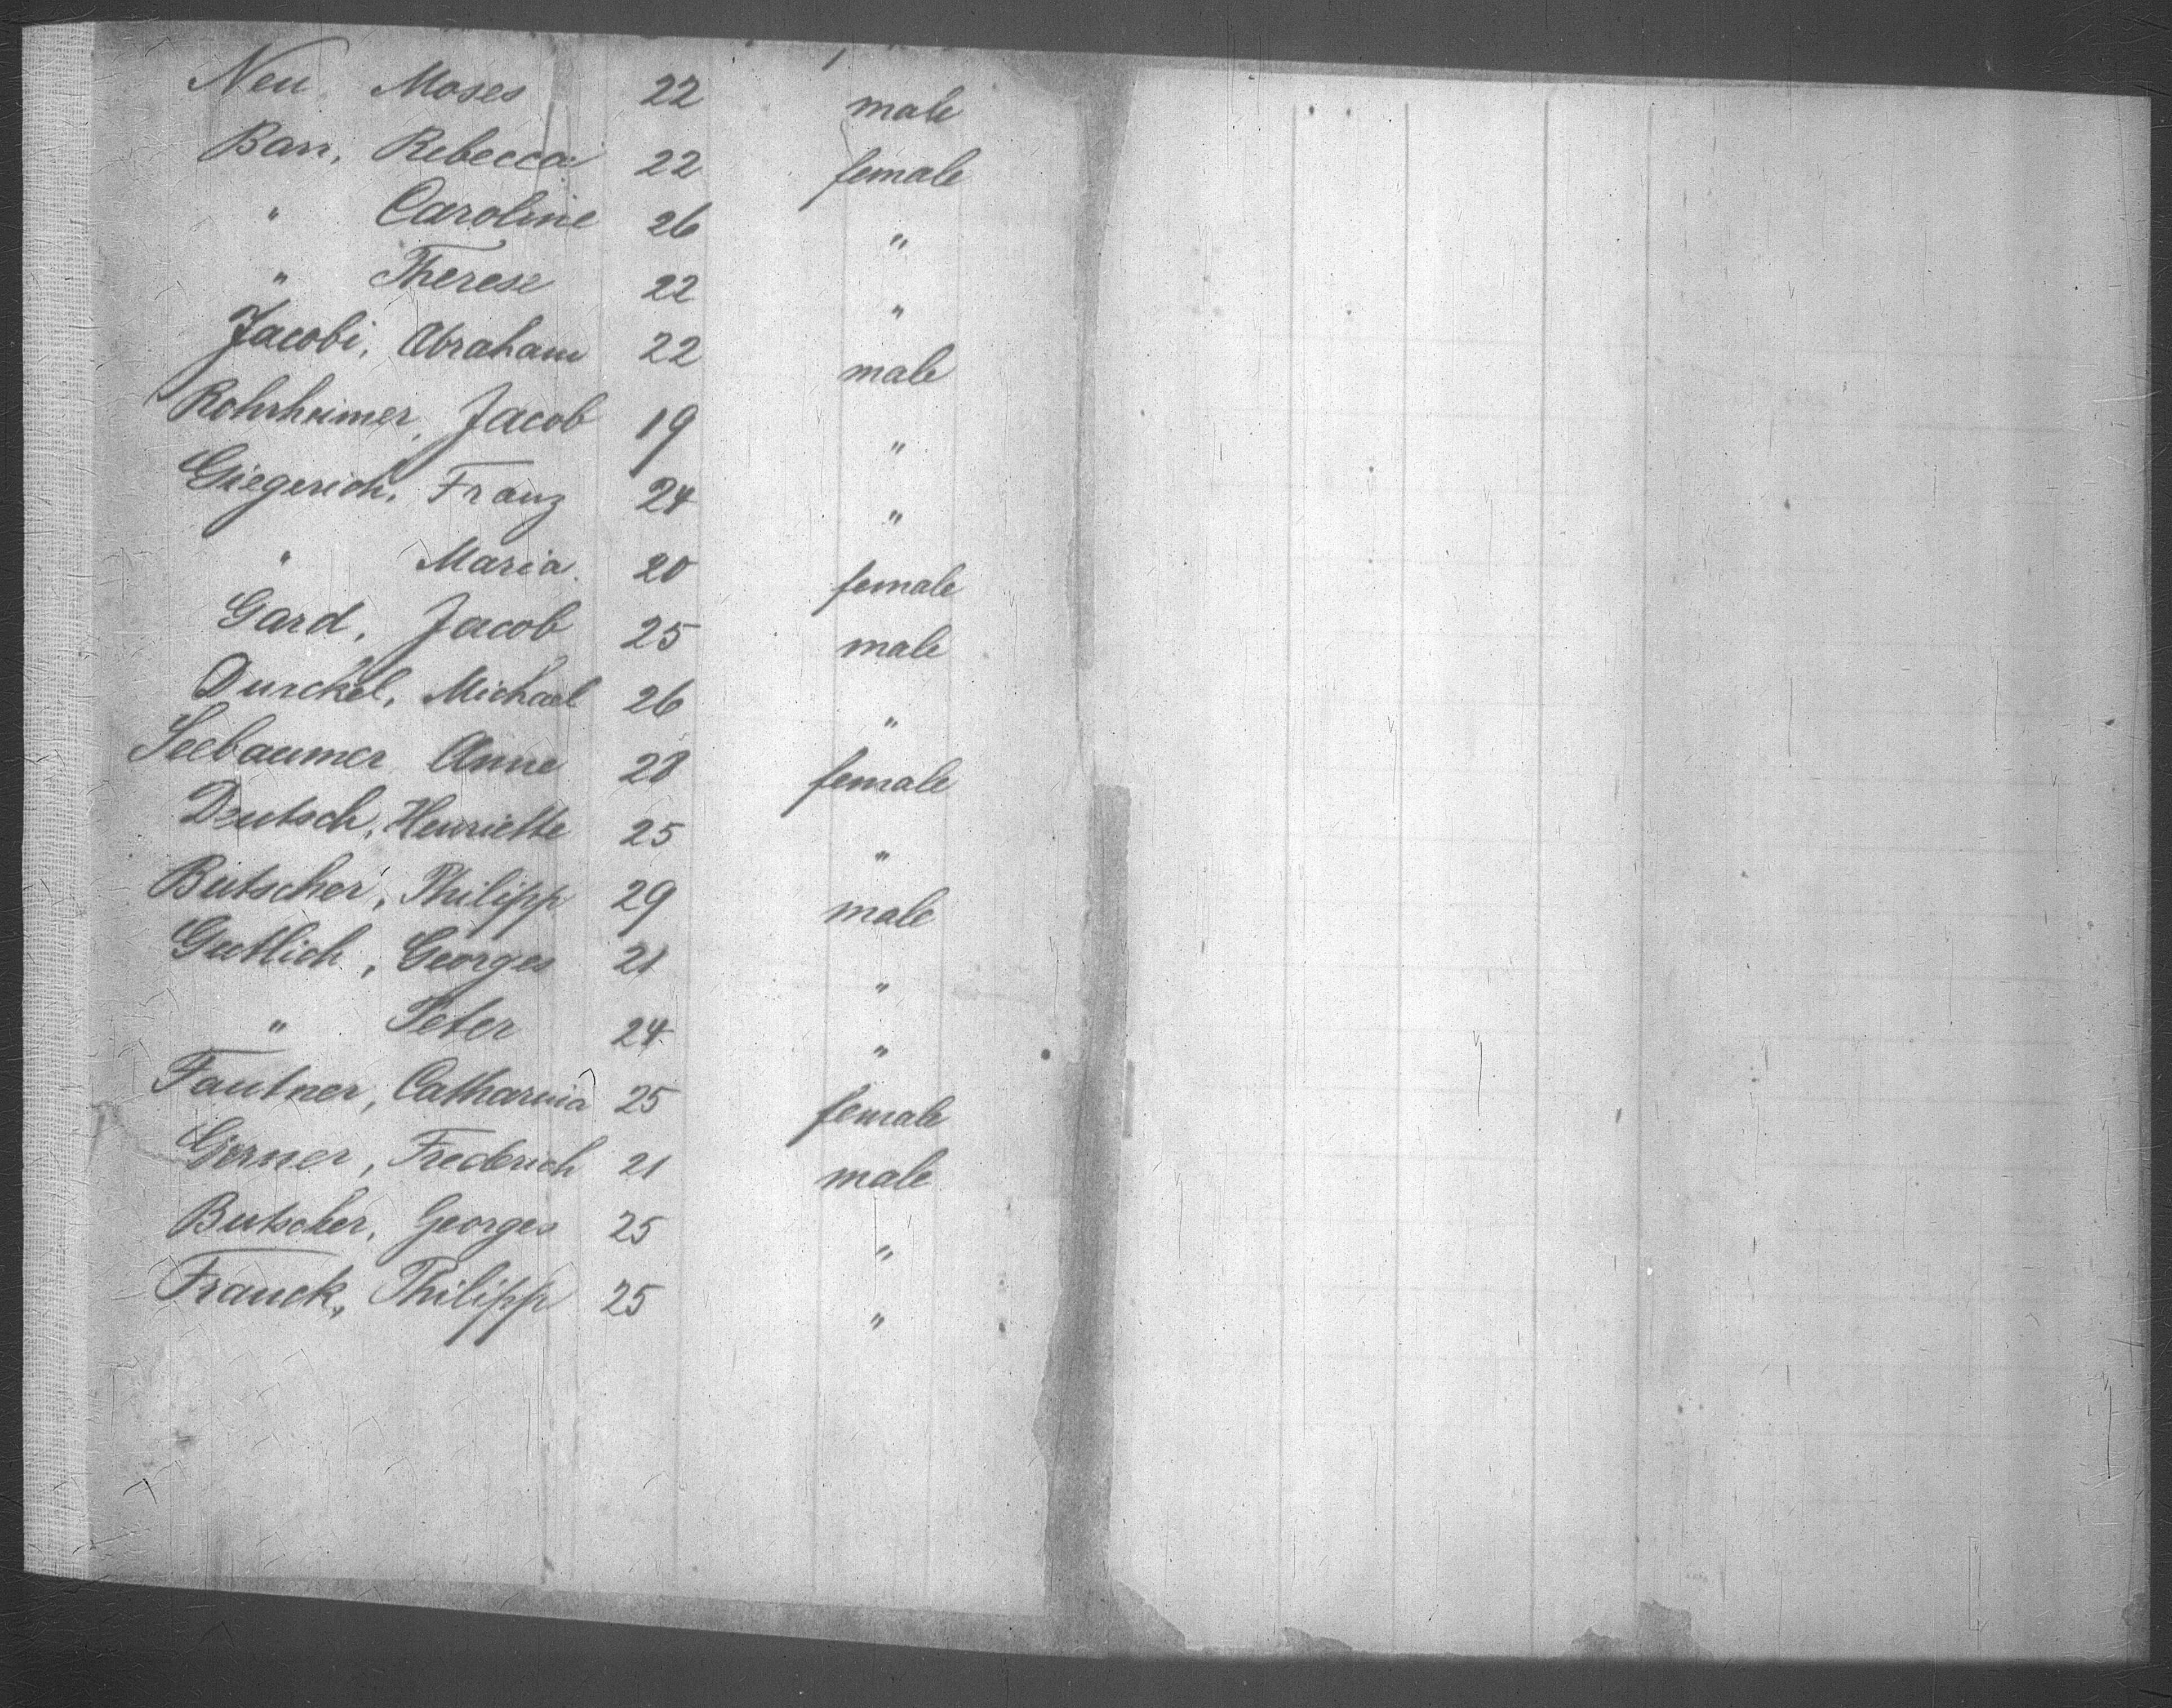 Neu Moses 22 male
Barr, Rebecca 22 female
" Caroline 26 "
" Therese 22 "
Jacobi, Abraham 22 male
Rohrheimer, Jacob 19 "
Giegerich, Franz 24 "
" Maria 20 female
Gard, Jacob 25 male
Durckel, Michael 26 "
Seebaumer Anne 28 female
Deutsch, Henriette 25 "
Butscher, Philipp 29 male
Gutlich, Georges 21 "
" Peter 24 "
Fautner, Catharina 25 female
Gerner, Frederich 21 male
Butscher, Georges 25 "
Franck, Philipp 25 "